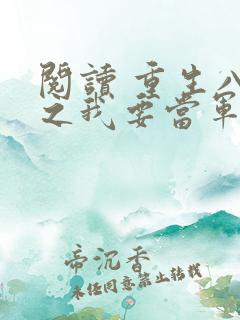 閱讀 重生八
之我要當軍
帝沉香
未经同意禁止转载